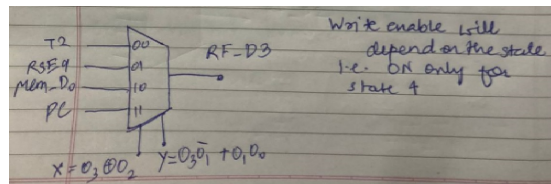 T2
RSE9
Mem_D0
PC
00
01
10
11
RF_D3
X = O3 ⊕ O2
Y = O3Ō1 + O1O0
Write enable will
depend on the state
i.e. ON only for
state 4